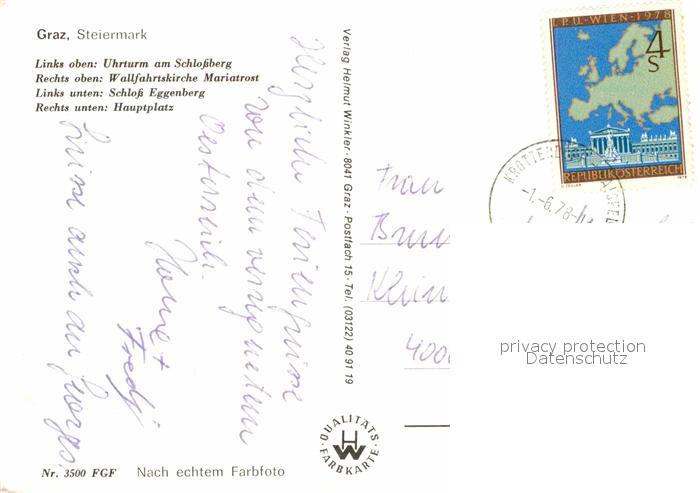 Graz, Steiermark
Links oben: Uhrturm am Schloßberg
Rechts oben: Wallfahrtskirche Mariatrost
Links unten: Schloß Eggenberg
Rechts unten: Hauptplatz
Herzliche Feriengrüsse
von dem verregneten
Oesterreich.
+
Fredy
Grüsse auch an
Verlag Helmut Winkler · 8041 Graz · Postfach 15 · Tel. (03122) 40 91 19
I.P.U.-WIEN-1978
4
S
REPUBLIK ÖSTERREICH
-1.-6.78-
Frau
Klein
400
privacy protection
Datenschutz
QUALITÄTS
HW
FARBKARTE
Nr. 3500 FGF
Nach echtem Farbfoto